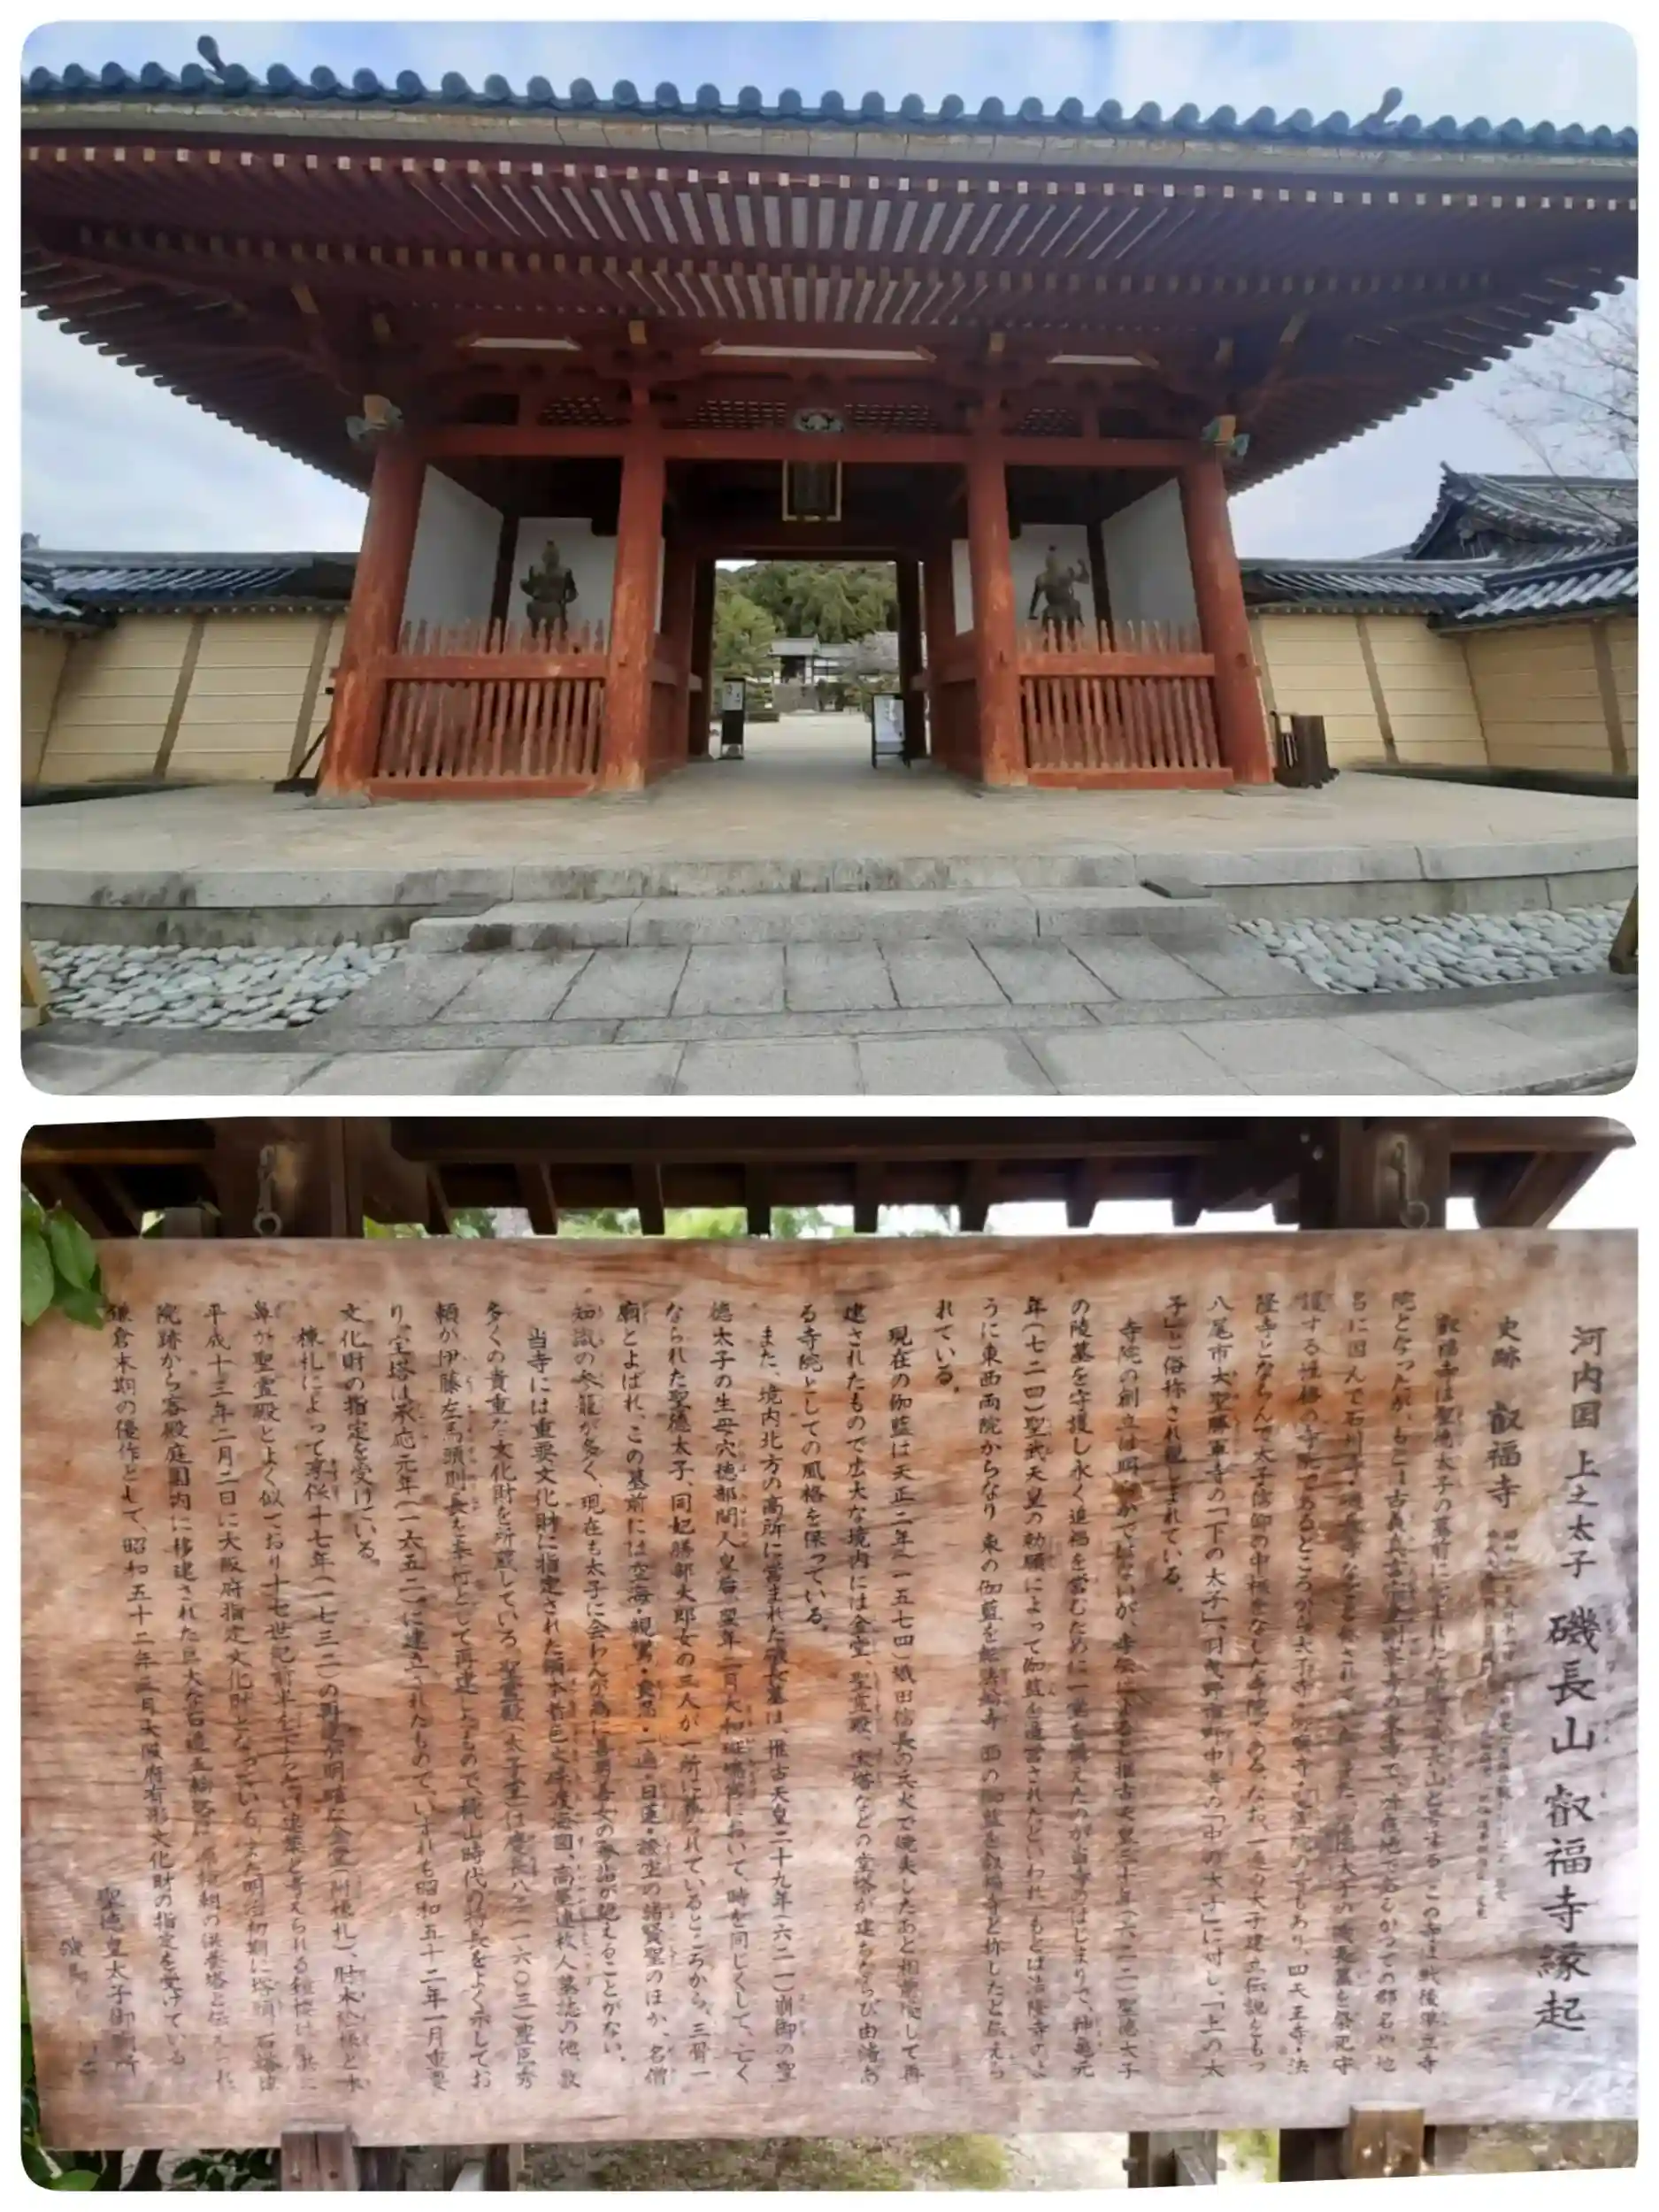 河内国 上之太子 磯長山 叡福寺縁起
史跡 叡福寺
叡福寺は聖徳太子の墓前に
院となったが、もと古義真言宗
名に因んで石川寺・磯長寺などとも称され
護する性格の寺院であるところから太子寺・
隆寺とならんで太子信仰の中核をなした寺院である。なお、一連の太子建立伝説をもつ
八尾市大聖勝軍寺の「下の太子」、羽曳野市野中寺の「中の太子」に対し、「上の太
子」と俗称され親しまれている。
寺院の創立は明らかではないが、寺伝によると推古天皇三十年(六二二)聖徳太子
の陵墓を守護し永く追福を営むために一堂を構えたのが当寺のはじまりで、神亀元
年(七二四)聖武天皇の勅願によって伽藍を造営されたといわれ、もとは法隆寺のよ
うに東西両院からなり、東の伽藍を転法輪寺、西の伽藍を叡福寺と称したと伝えら
れている。
現在の伽藍は天正二年(一五七四)織田信長の兵火で焼失したあと相ついで再
建されたもので広大な境内には金堂、聖霊殿、宝塔などの堂塔が建ちならび由緒あ
る寺院としての風格を保っている。
また、境内北方の高所に営まれた磯長墓は、推古天皇二十九年(六二一)崩御の聖
徳太子の生母穴穂部間人皇后、翌年二月大和斑鳩宮において、時を同じくして、亡く
なられた聖徳太子、同妃膳部大郎女の三人が一所に葬られているところから、三骨一
廟とよばれ、この墓前には空海・親鸞・良忍・一遍・日蓮・證空の諸賢聖のほか、名僧
知識の参籠が多く、現在も太子に会わんが為に善男善女の参詣が絶えることがない。
当寺には重要文化財に指定された絹本着色文殊渡海図、高屋連枚人墓誌の他、数
多くの貴重な文化財を所蔵している。聖霊殿(太子堂)は慶長八年(一六〇三)豊臣秀
頼が伊藤左馬頭則長を奉行として再建したもので、桃山時代の特長をよく示してお
り、宝塔は承応元年(一六五二)に建立されたもので、いずれも昭和五十二年一月重要
文化財の指定を受けている。
棟札によって享保十七年(一七三二)の再建が明確な金堂(附棟札)、肘木絵様と木
鼻が聖霊殿とよく似ており十七世紀前半を下らない建築と考えられる鐘楼は、共に
平成十三年二月二日に大阪府指定文化財となっている。また明治初期に塔頭
院跡から客殿庭園内に移建された巨大な石造五輪塔は
鎌倉末期の優作として、昭和五十二年三月大阪府有形文化財の指定を受けている
聖徳皇太子御廟所